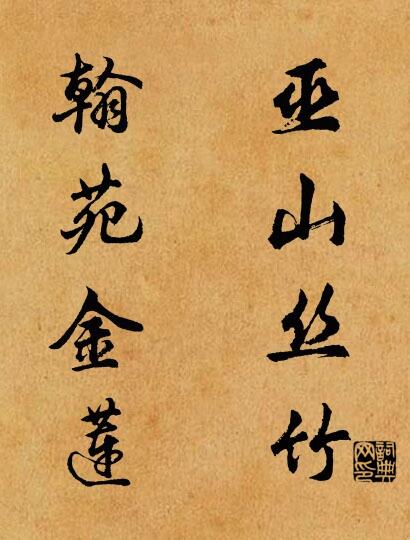 巫山丝竹
翰苑金莲
詞典网印